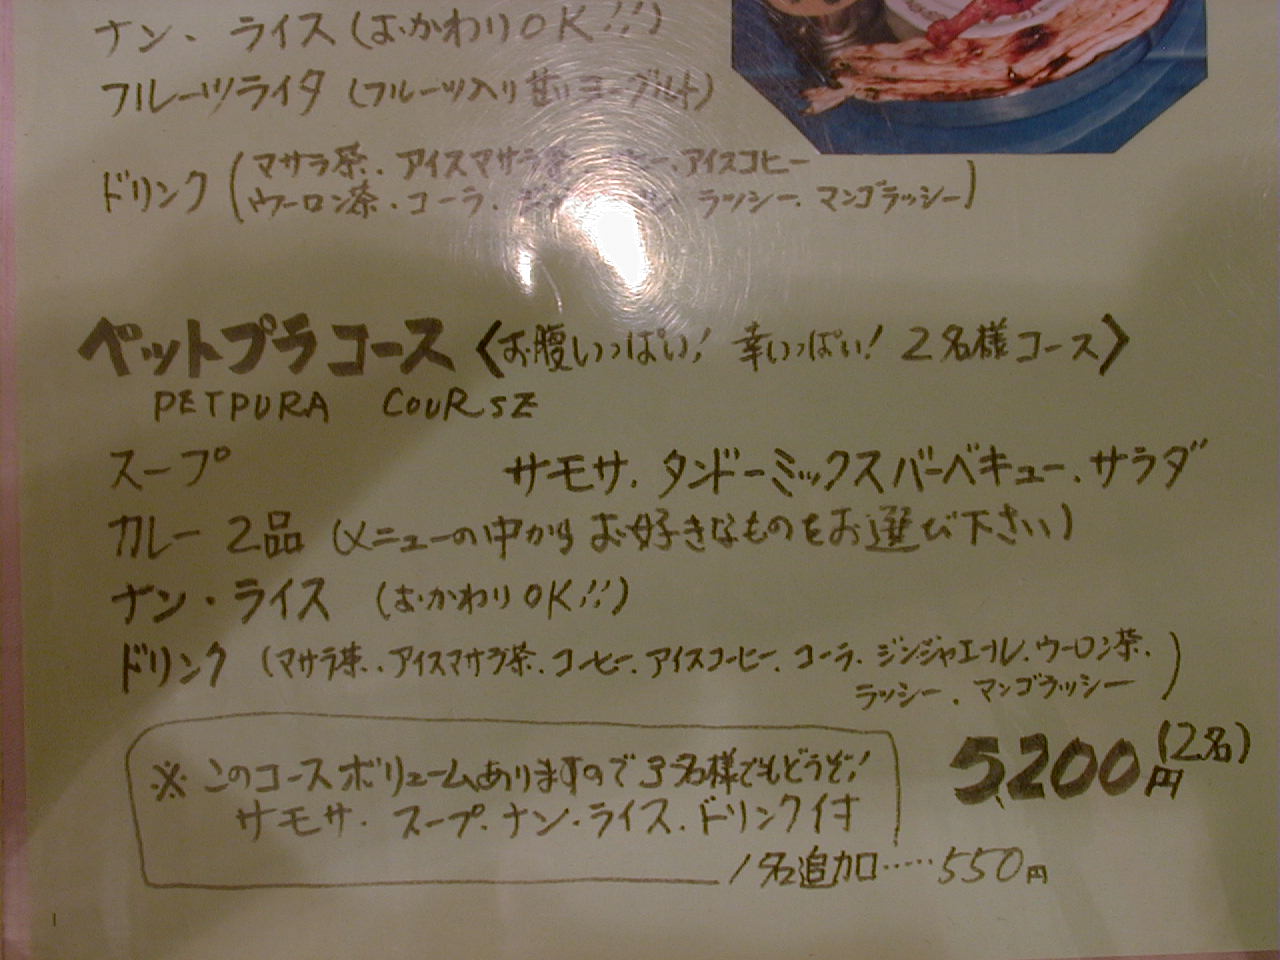 ナン、ライス (おかわりOK!!)
フルーツライタ (フルーツ入り甘いヨーグルト)
ドリンク (マサラ茶、アイスマサラ茶 アイスコヒー
ウーロン茶・コーラ、 ラッシー、マンゴラッシー)
ペットプラコース〈お腹いっぱい! 幸いっぱい! 2名様コース〉
PETPURA COURSE
スープ サモサ、タンドーミックスバーベキュー、サラダ
カレー 2品 (メニューの中からお好きなものをお選び下さい)
ナン・ライス (おかわりOK!!)
ドリンク (マサラ茶、アイスマサラ茶、コーヒー、アイスコーヒー、コーラ、ジンジャエール、ウーロン茶、
ラッシー、マンゴラッシー)
5,200円 (2名)
※このコースボリュームありますので3名様でもどうぞ!
サモサ・スープ・ナン・ライス・ドリンク付
1名追加……550円